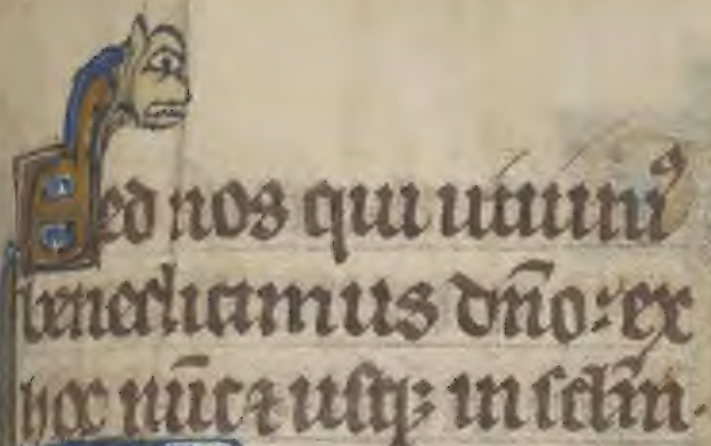 Sed nos qui uiuimꝰ
benedicimus dn̄o: ex
hoc nūc ⁊ usq; in sclm̄.